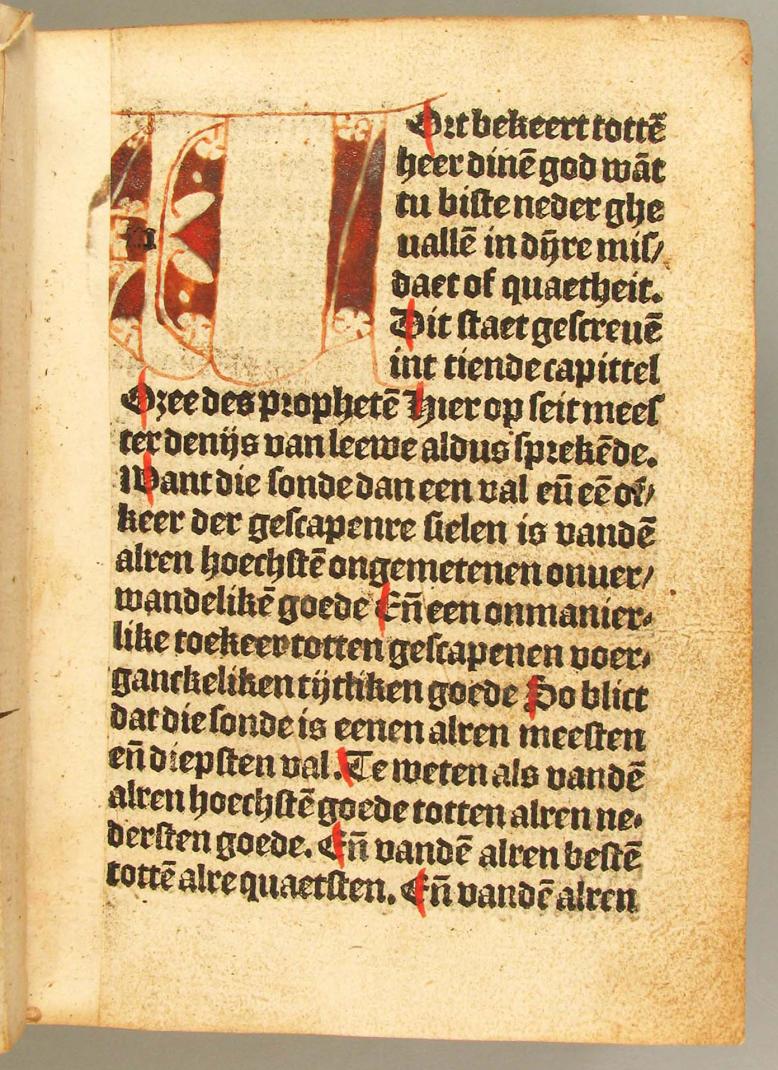 W Ort bekeert tottē
heer dinē god wāt
tu biste neder ghe
uallē in dȳre mis/
daet of quaetheit.
Dit staet gescreuē
int tiende capittel
Ozee des prophetē Hier op seit mees
ter denijs van leewe aldus sprekēde.
Want die sonde dan een val eñ eē of/
keer der gescapenre sielen is vandē
alren hoechstē ongemetenen onuer/
wandelikē goede Eñ een onmanier-
like toekeer totten gescapenen voer-
ganckeliken tijtliken goede So blict
dat die sonde is eenen alren meesten
eñ diepsten val. Te weten als vandē
alren hoechstē goede totten alren ne-
dersten goede. Eñ vandē alren bestē
tottē alre quaetsten. Eñ vandē alren